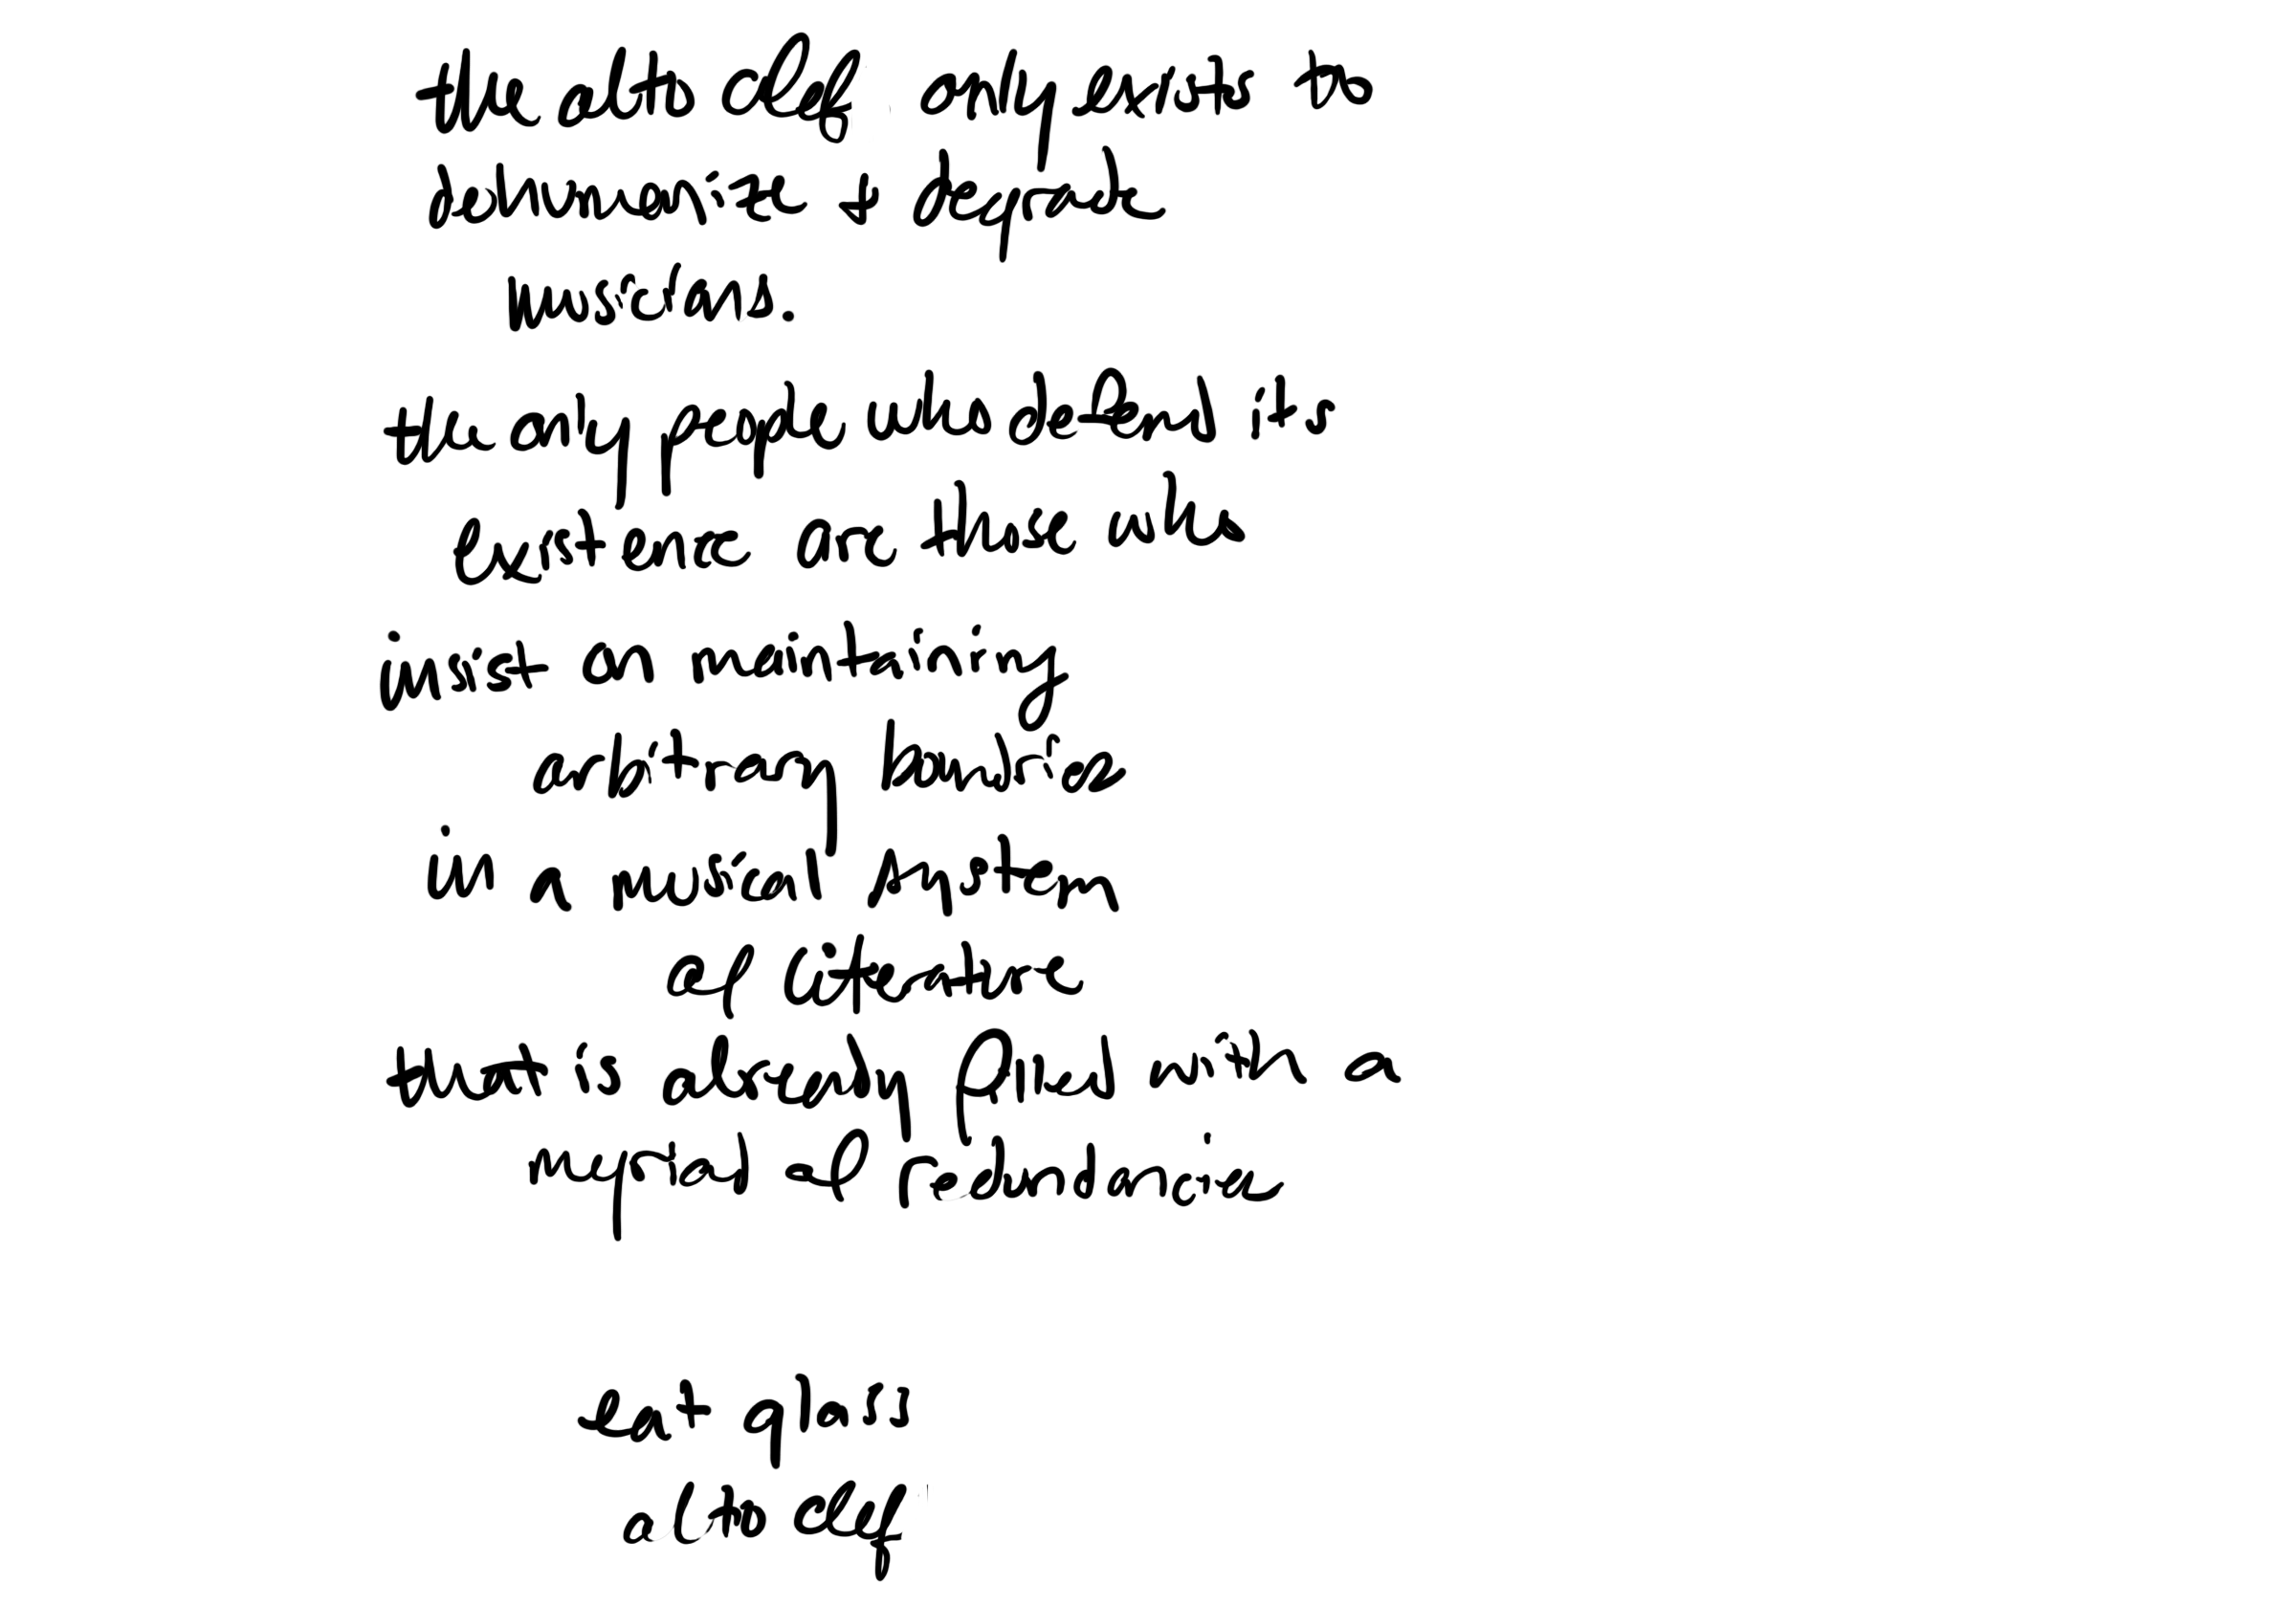 the alto clef only exists to
dehumanize + degrade
musicians.
the only people who defend its
existence are those who
insist on maintaining
arbitrary boundries
in a musical system
of literature
that is already filled with a
myriad of redundancies
eat glass
alto clef